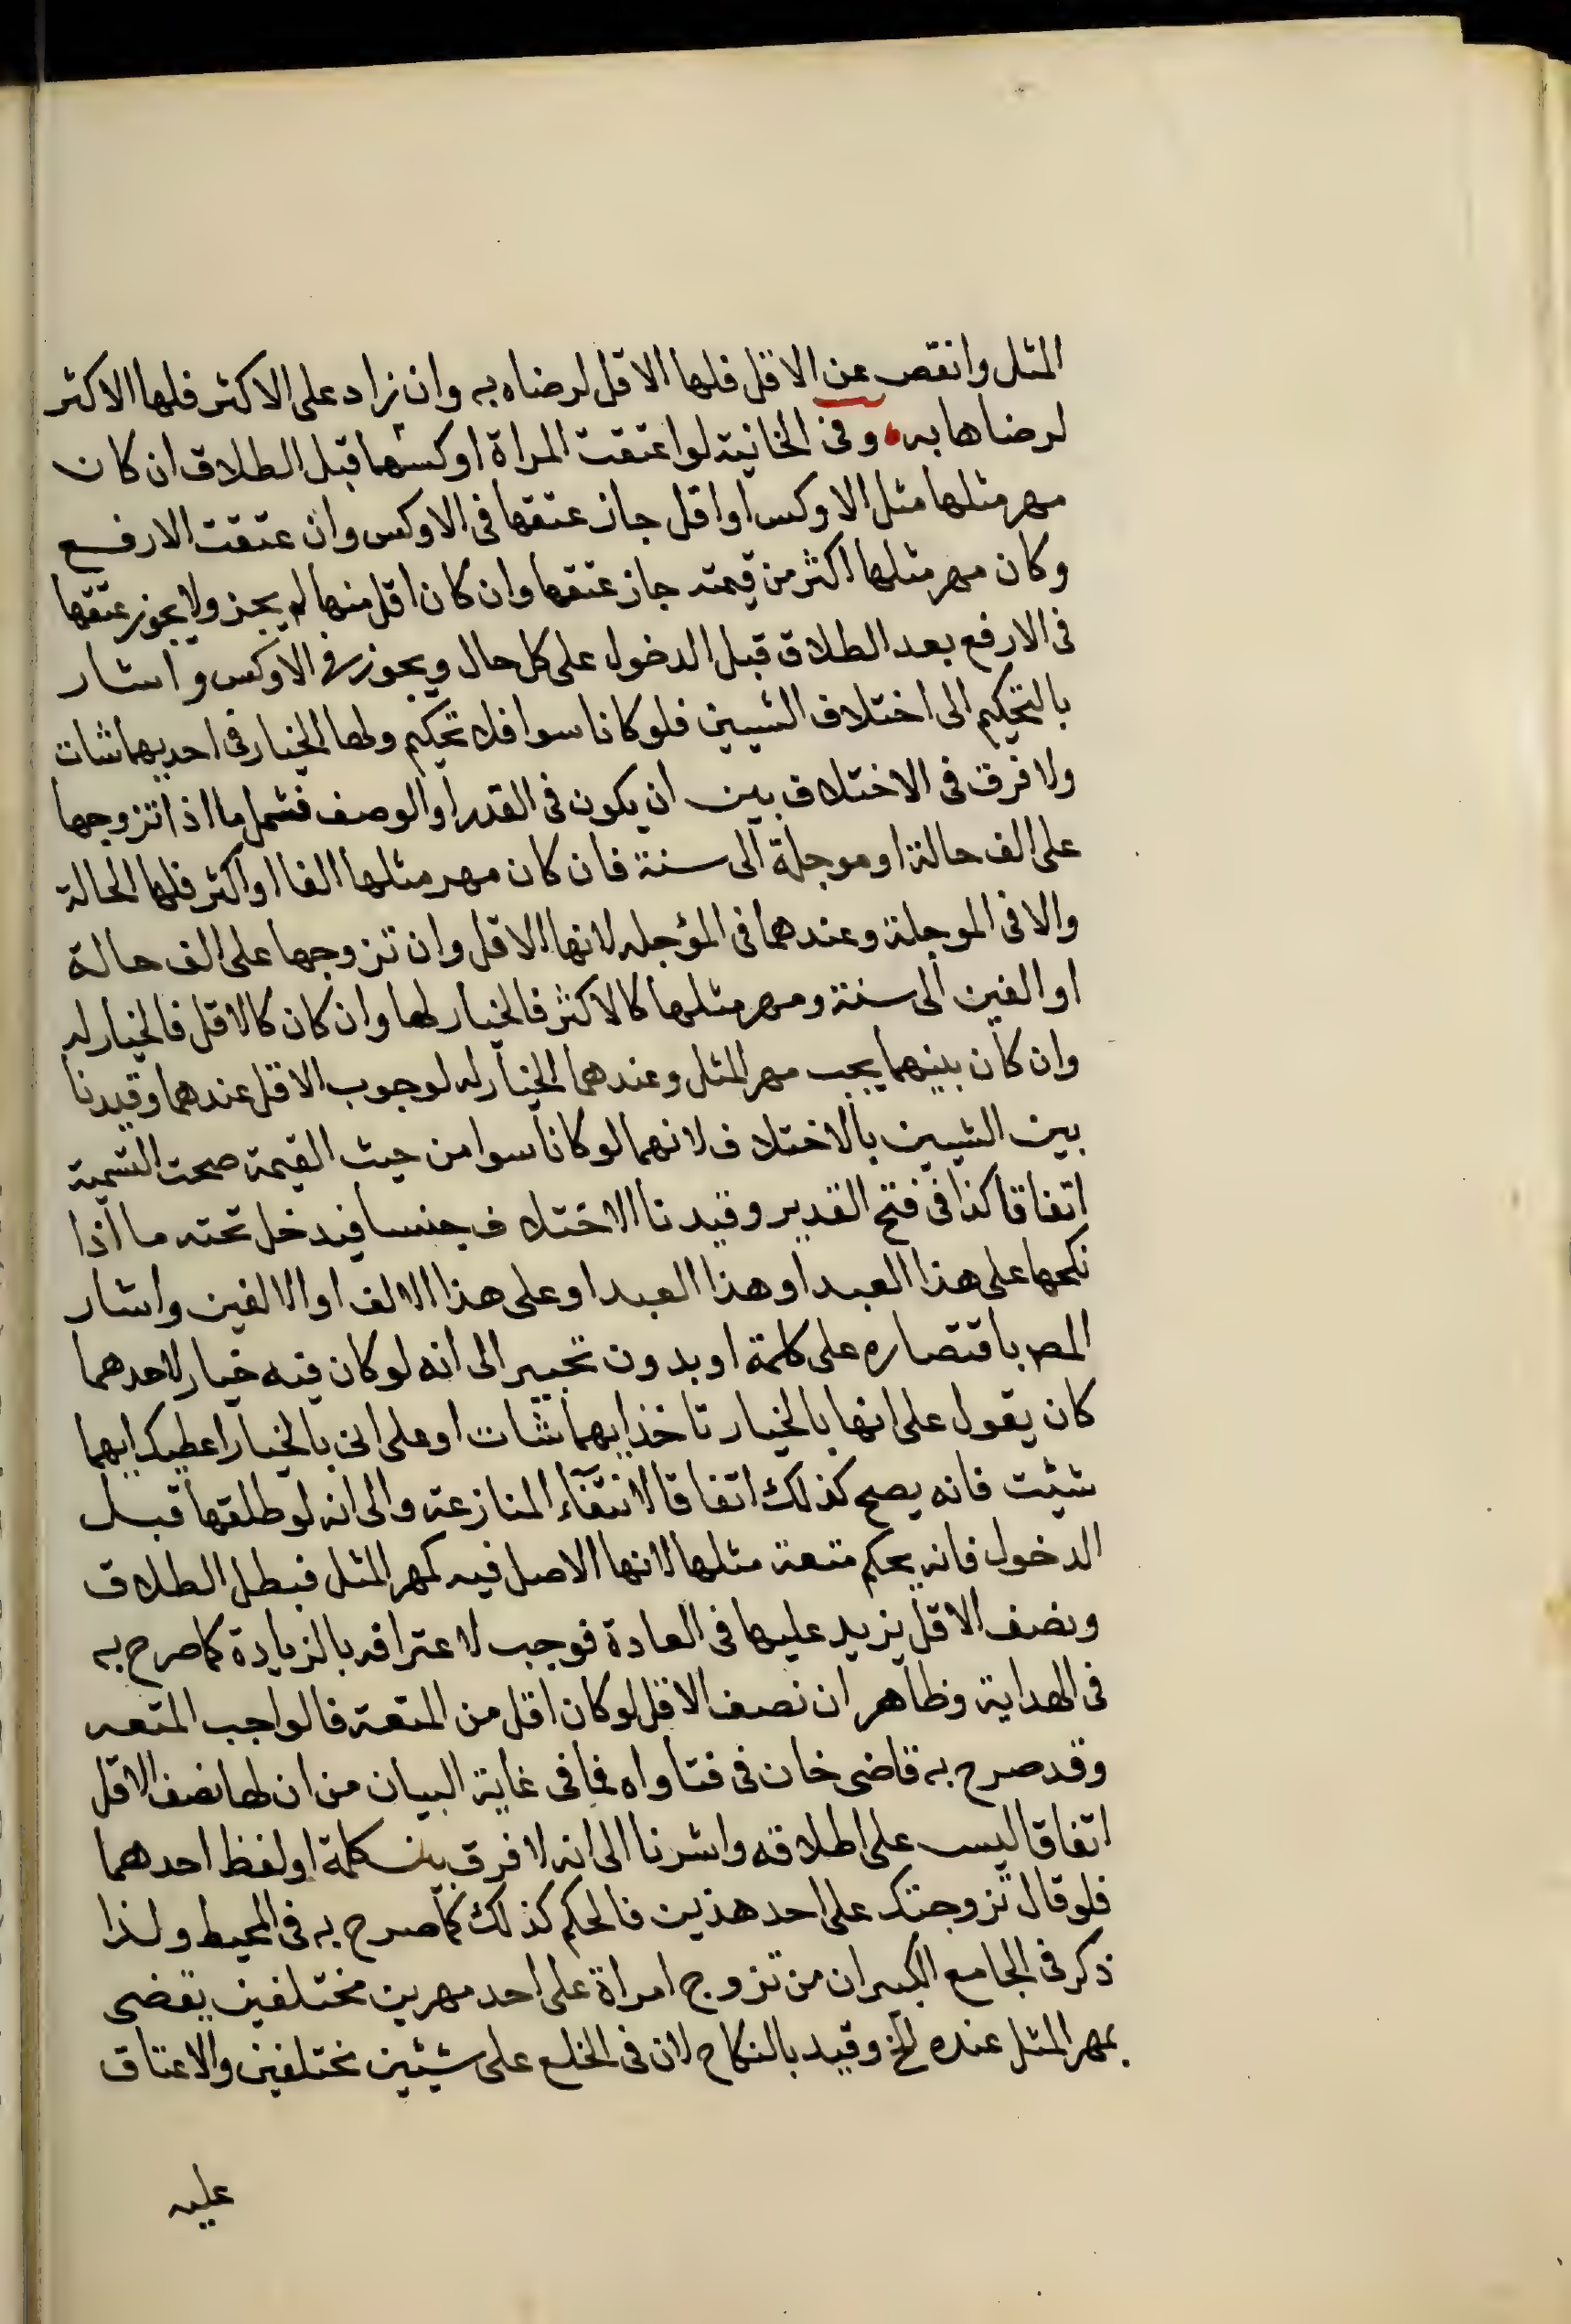 المثل وانقص عن الاقل فلها الاقل لرضاه به وان زاد على الاكثر فلها الاكثر
لرضاها به وفى الخانية لو اعتقت المراة اوكسهما قبل الطلاق ان كان
مهر مثلها مثل الاوكس او اقل جاز عتقها فى الاوكس وان عتقت الارفع
وكان مهر مثلها اكثر من قيمته جاز عتقها وان كان اقل منها لم يجز ولا يجوز عتقها
فى الارفع بعد الطلاق قبل الدخول على كل حال ويجوز فى الاوكس واشار
بالتحكيم الى اختلاف الشيين فلو كانا سوا فلا تحكيم ولها الخيار فى احديهما شات
ولا فرق فى الاختلاف بين ان يكون فى القدر او الوصف فشمل ما اذا تزوجها
على الف حالة او موجلة الى سنة فان كان مهر مثلها الفا او اكثر فلها الحالة
والا فى الموجلة وعندهما فى المؤجله لانها الاقل وان تزوجها على الف حالة
او الفين الى سنة ومهر مثلها كالاكثر فالخيار لها وان كان كالاقل فالخيار له
وان كان بينهما يجب مهر المثل وعندهما الخيار له لوجوب الاقل عندهما وقيدنا
بين الشيين بالاختلاف لانهما لو كانا سوا من حيث القيمة صحت التسمية
اتفاقا كذا فى فتح القدير وقيدنا الاختلاف جنسا فيدخل تحته ما اذا
نكحها على هذا العبد او هذا العبد او على هذا الالف او الالفين واشار
المص باقتصاره على كلمة او بدون تخيير الى انه لو كان فيه خيار لاحدهما
كان يقول على انها بالخيار تاخذ ايهما شات او على انى بالخيار اعطيك ايهما
شيت فانه يصح كذلك اتفاقا لانتفآء المنازعة والى انه لو طلقها قبل
الدخول فانه يحكم متعة مثلها لانها الاصل فيه كمهر المثل فبطل الطلاق
ونصف الاقل يزيد عليها فى العادة فوجب لاعترافه بالزيادة كما صرح به
فى الهداية وظاهر ان نصف الاقل لو كان اقل من المتعة فالواجب المتعه
وقد صرح به قاضى خان فى فتاواه فما فى غاية البيان من ان لها نصف الاقل
اتفاقا ليس على اطلاقه واشرنا الى انه لا فرق بين كلمة او لفظ احدهما
فلو قال تزوجتك على احد هذين فالحكم كذلك كما صرح به فى المحيط ولذا
ذكر فى الجامع الكبير ان من تزوج امراة على احد مهرين مختلفين يقضى
بمهر المثل عنده الخ وقيد بالنكاح لان فى الخلع على شيئين مختلفين والاعتاق
عليه